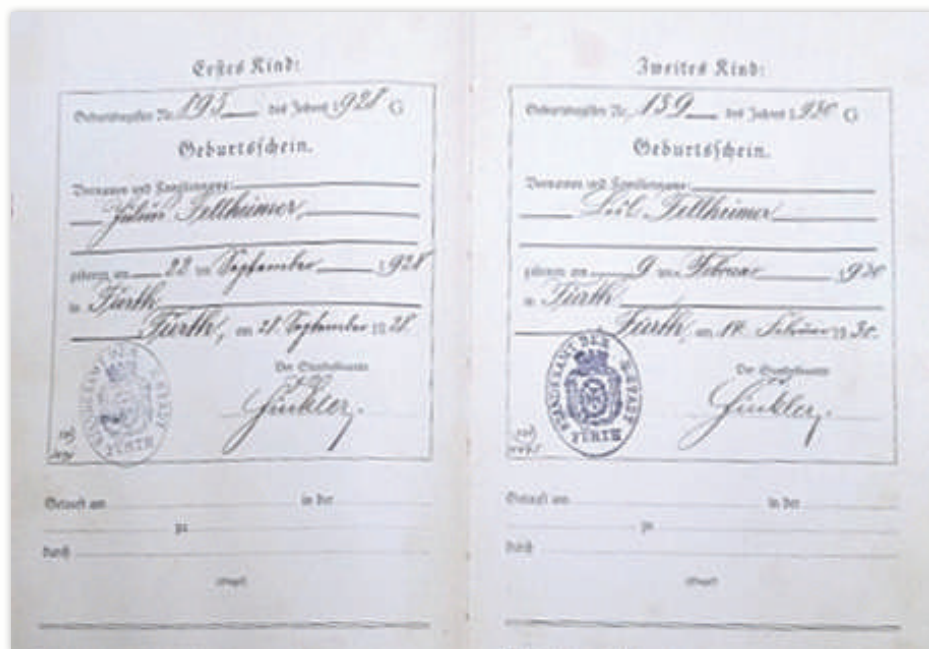 Erstes Kind:
Geburtsregister Nr. 193 des Jahres 1928 G
Geburtsschein.
Vornamen und Familienname:
Julius Fellheimer
geboren am 22 ten September 1928
in Fürth
Fürth, am 28. September 1928.
Der Standesbeamte
STANDESAMT DER STADT FÜRTH
Getauft am in der
zu
durch
(Siegel)
Zweites Kind:
Geburtsregister Nr. 139 des Jahres 1930 G
Geburtsschein.
Vornamen und Familienname:
Fellheimer
geboren am 9 ten Februar 1930
in Fürth
Fürth, am Februar 1930.
Der Standesbeamte
STANDESAMT DER STADT FÜRTH
Getauft am in der
zu
durch
(Siegel)